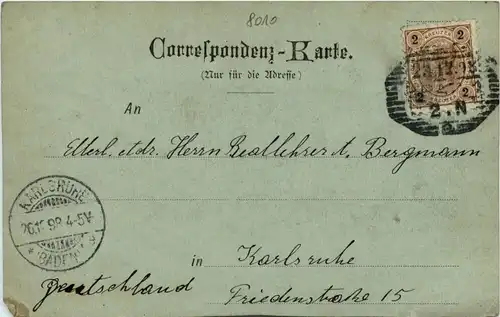 8010
Correspondenz-Karte.
(Nur für die Adresse)
2 KREUZER 2
2 2
2.N
An
Herrn Reallehrer A. Bergmann
KARLSRUHE
98 4-5N
BADEN
in Karlsruhe
Deutschland Friedenstraße 15